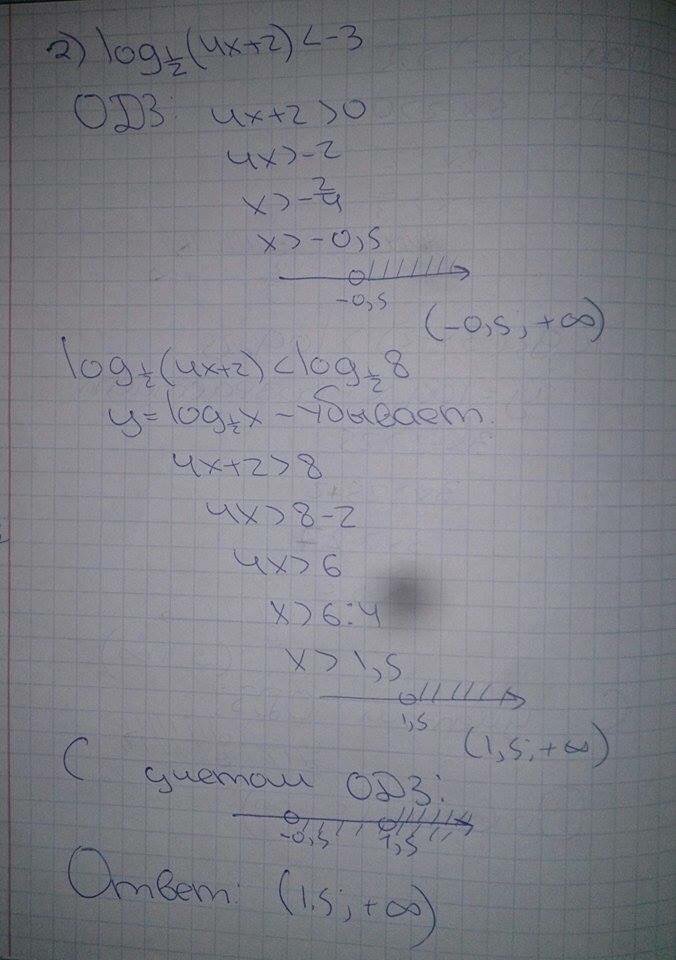 2) log½(4x+2)<-3
ОДЗ: 4x+2>0
4x>-2
x>-2/4
x>-0,5
-0,5
(-0,5; +∞)
log½(4x+2)<log½8
y=log½x - убывает.
4x+2>8
4x>8-2
4x>6
x>6:4
x>1,5
1,5
(1,5; +∞)
С учетом ОДЗ:
-0,5 1,5
Ответ: (1,5; +∞)